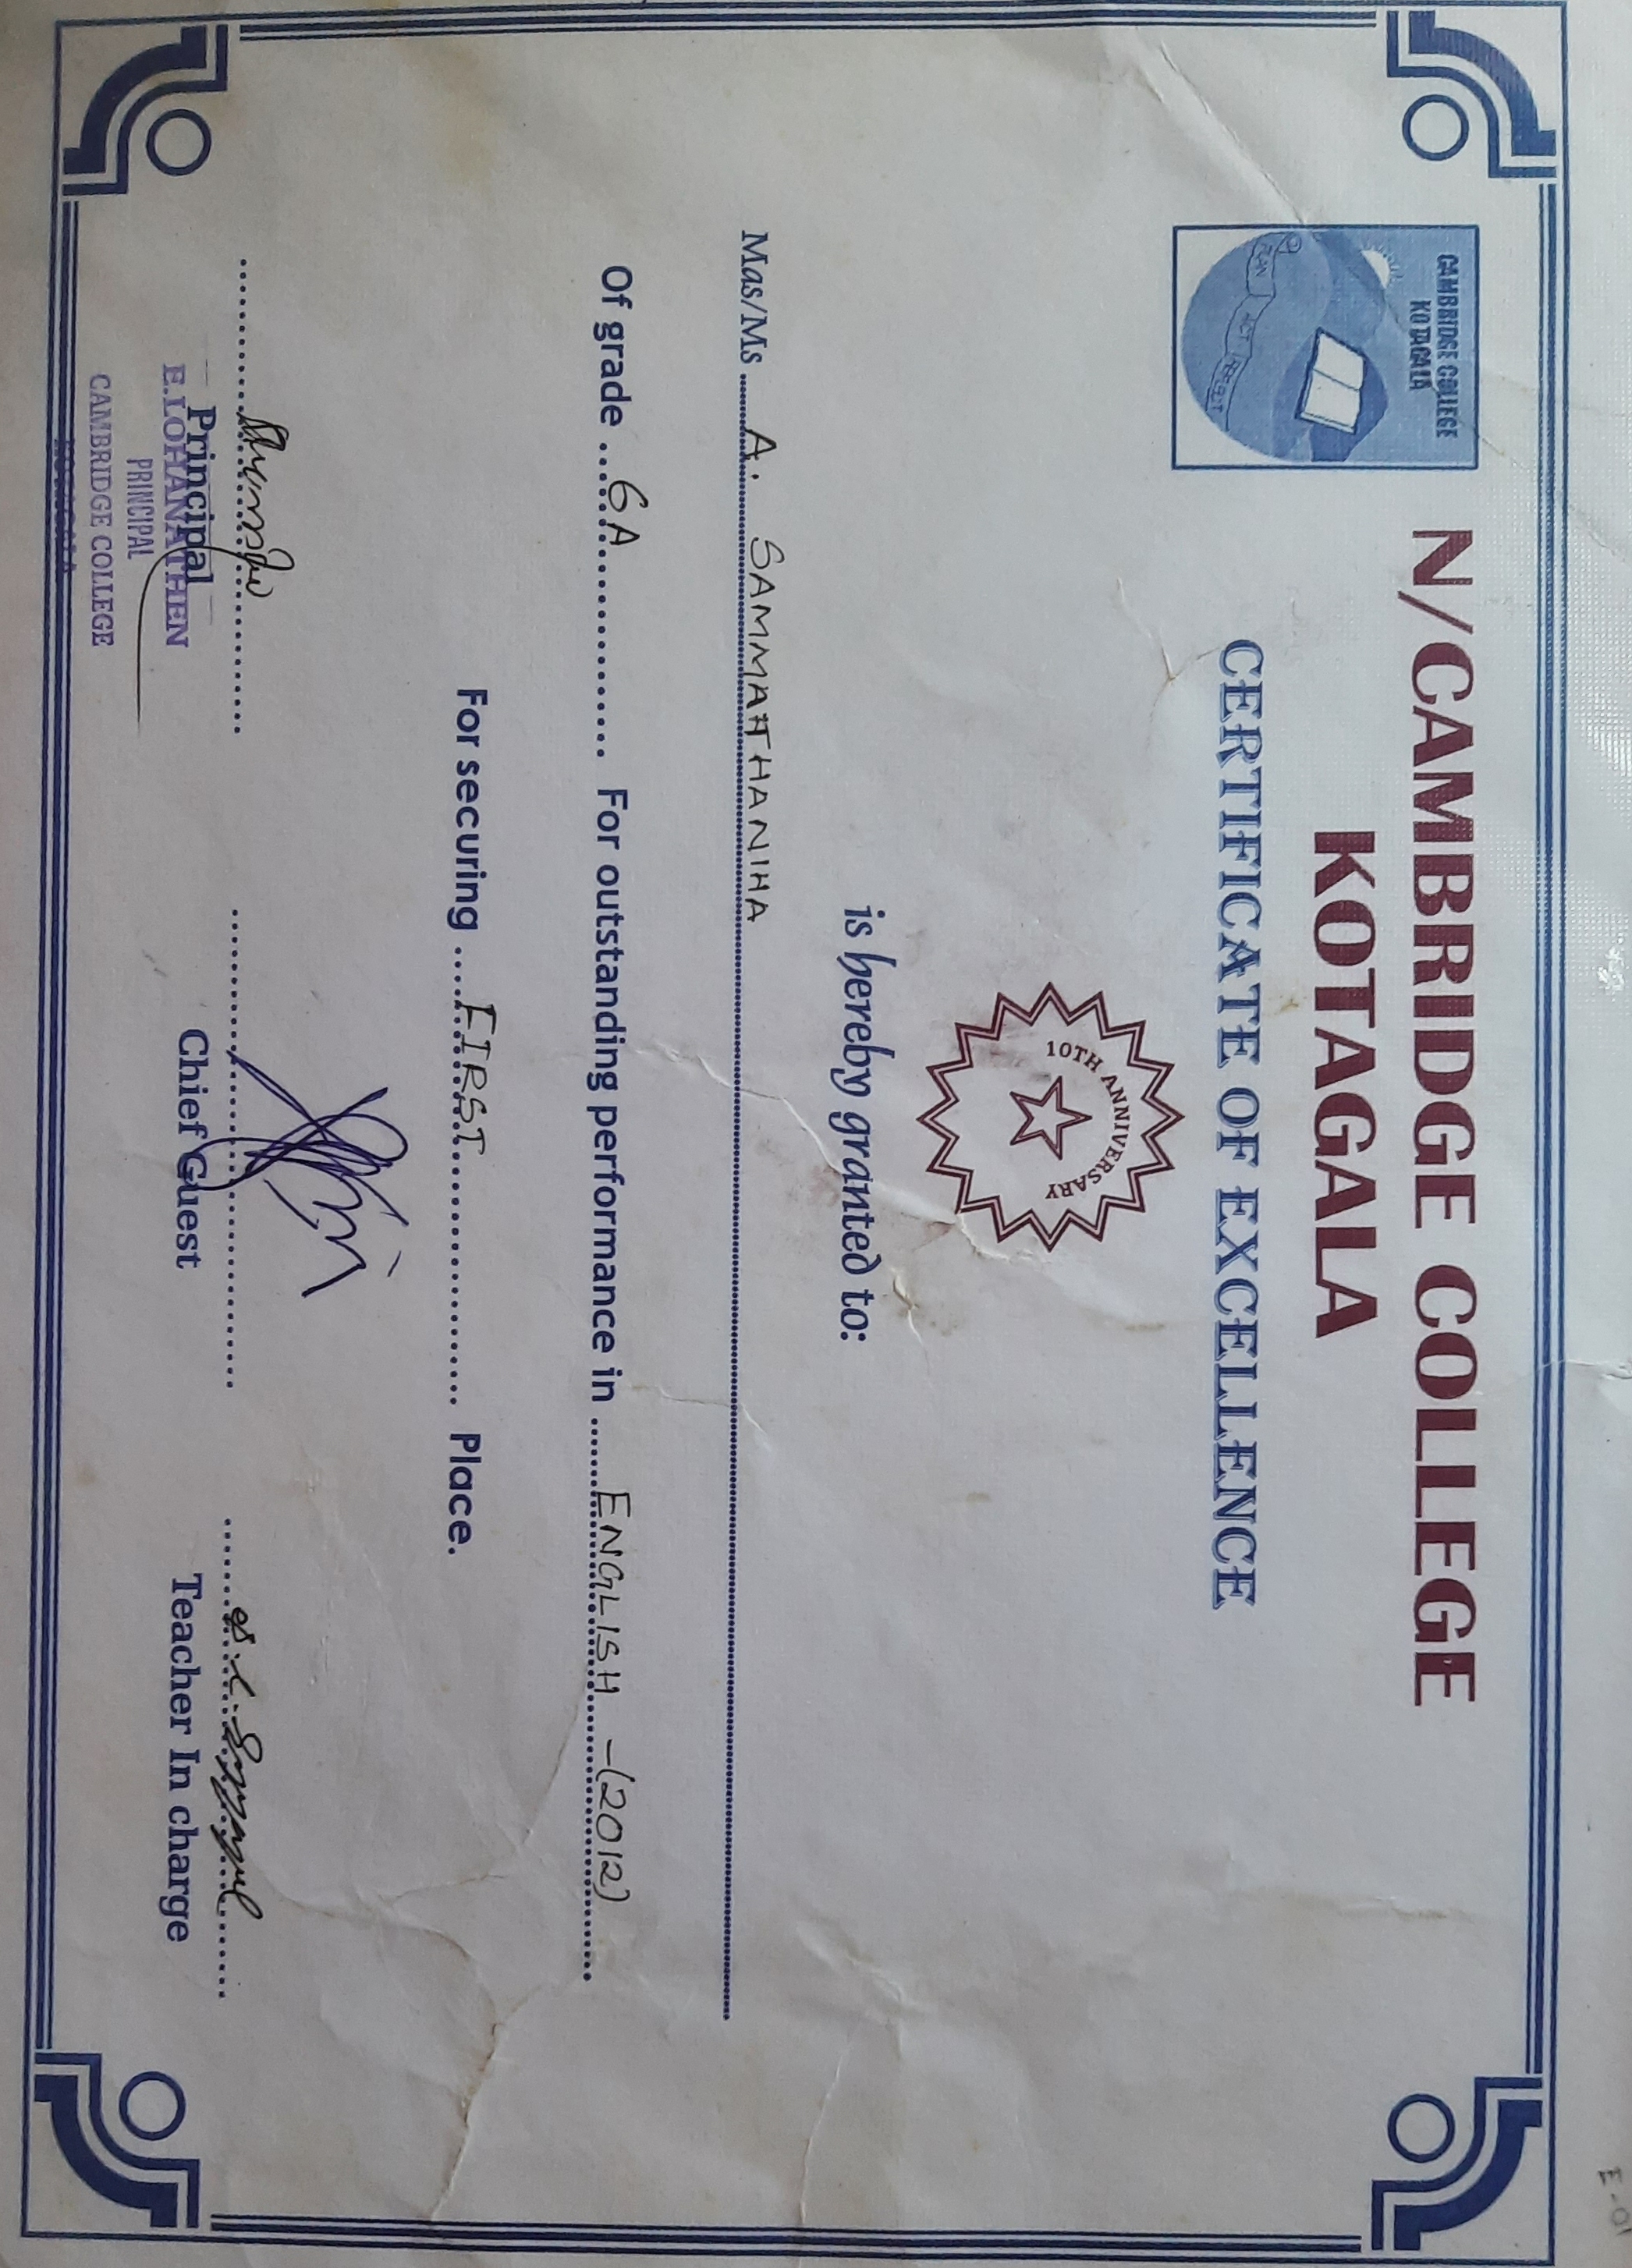 E-01
CAMBRIDGE COLLEGE
KOTAGALA
PLAN ACT REFLECT
N/CAMBRIDGE COLLEGE
KOTAGALA
CERTIFICATE OF EXCELLENCE
10TH ANNIVERSARY
is hereby granted to:
Mas/Ms A. SAMMATHANIHA
Of grade 6A For outstanding performance in ENGLISH -(2012)
For securing FIRST Place.
Principal
Chief Guest
Teacher In charge
E.LOHANATHEN
PRINCIPAL
CAMBRIDGE COLLEGE
KOTAGALA